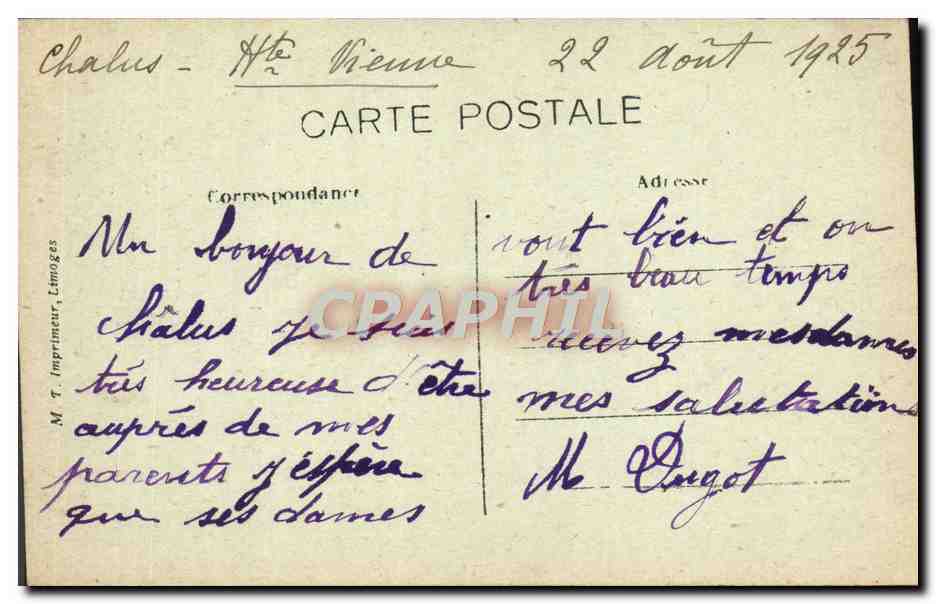 Chalus - Hte Vienne 22 Août 1925
CARTE POSTALE
Correspondance
Adresse
M. T. Imprimeur, Limoges
Un bonjour de
châlus je suis
très heureuse d'être
auprés de mes
parents j'éspère
que ses dames
vont bien et on
très beau temps
recevez mesdames
mes salutation
M Dugot
CPAPHIL